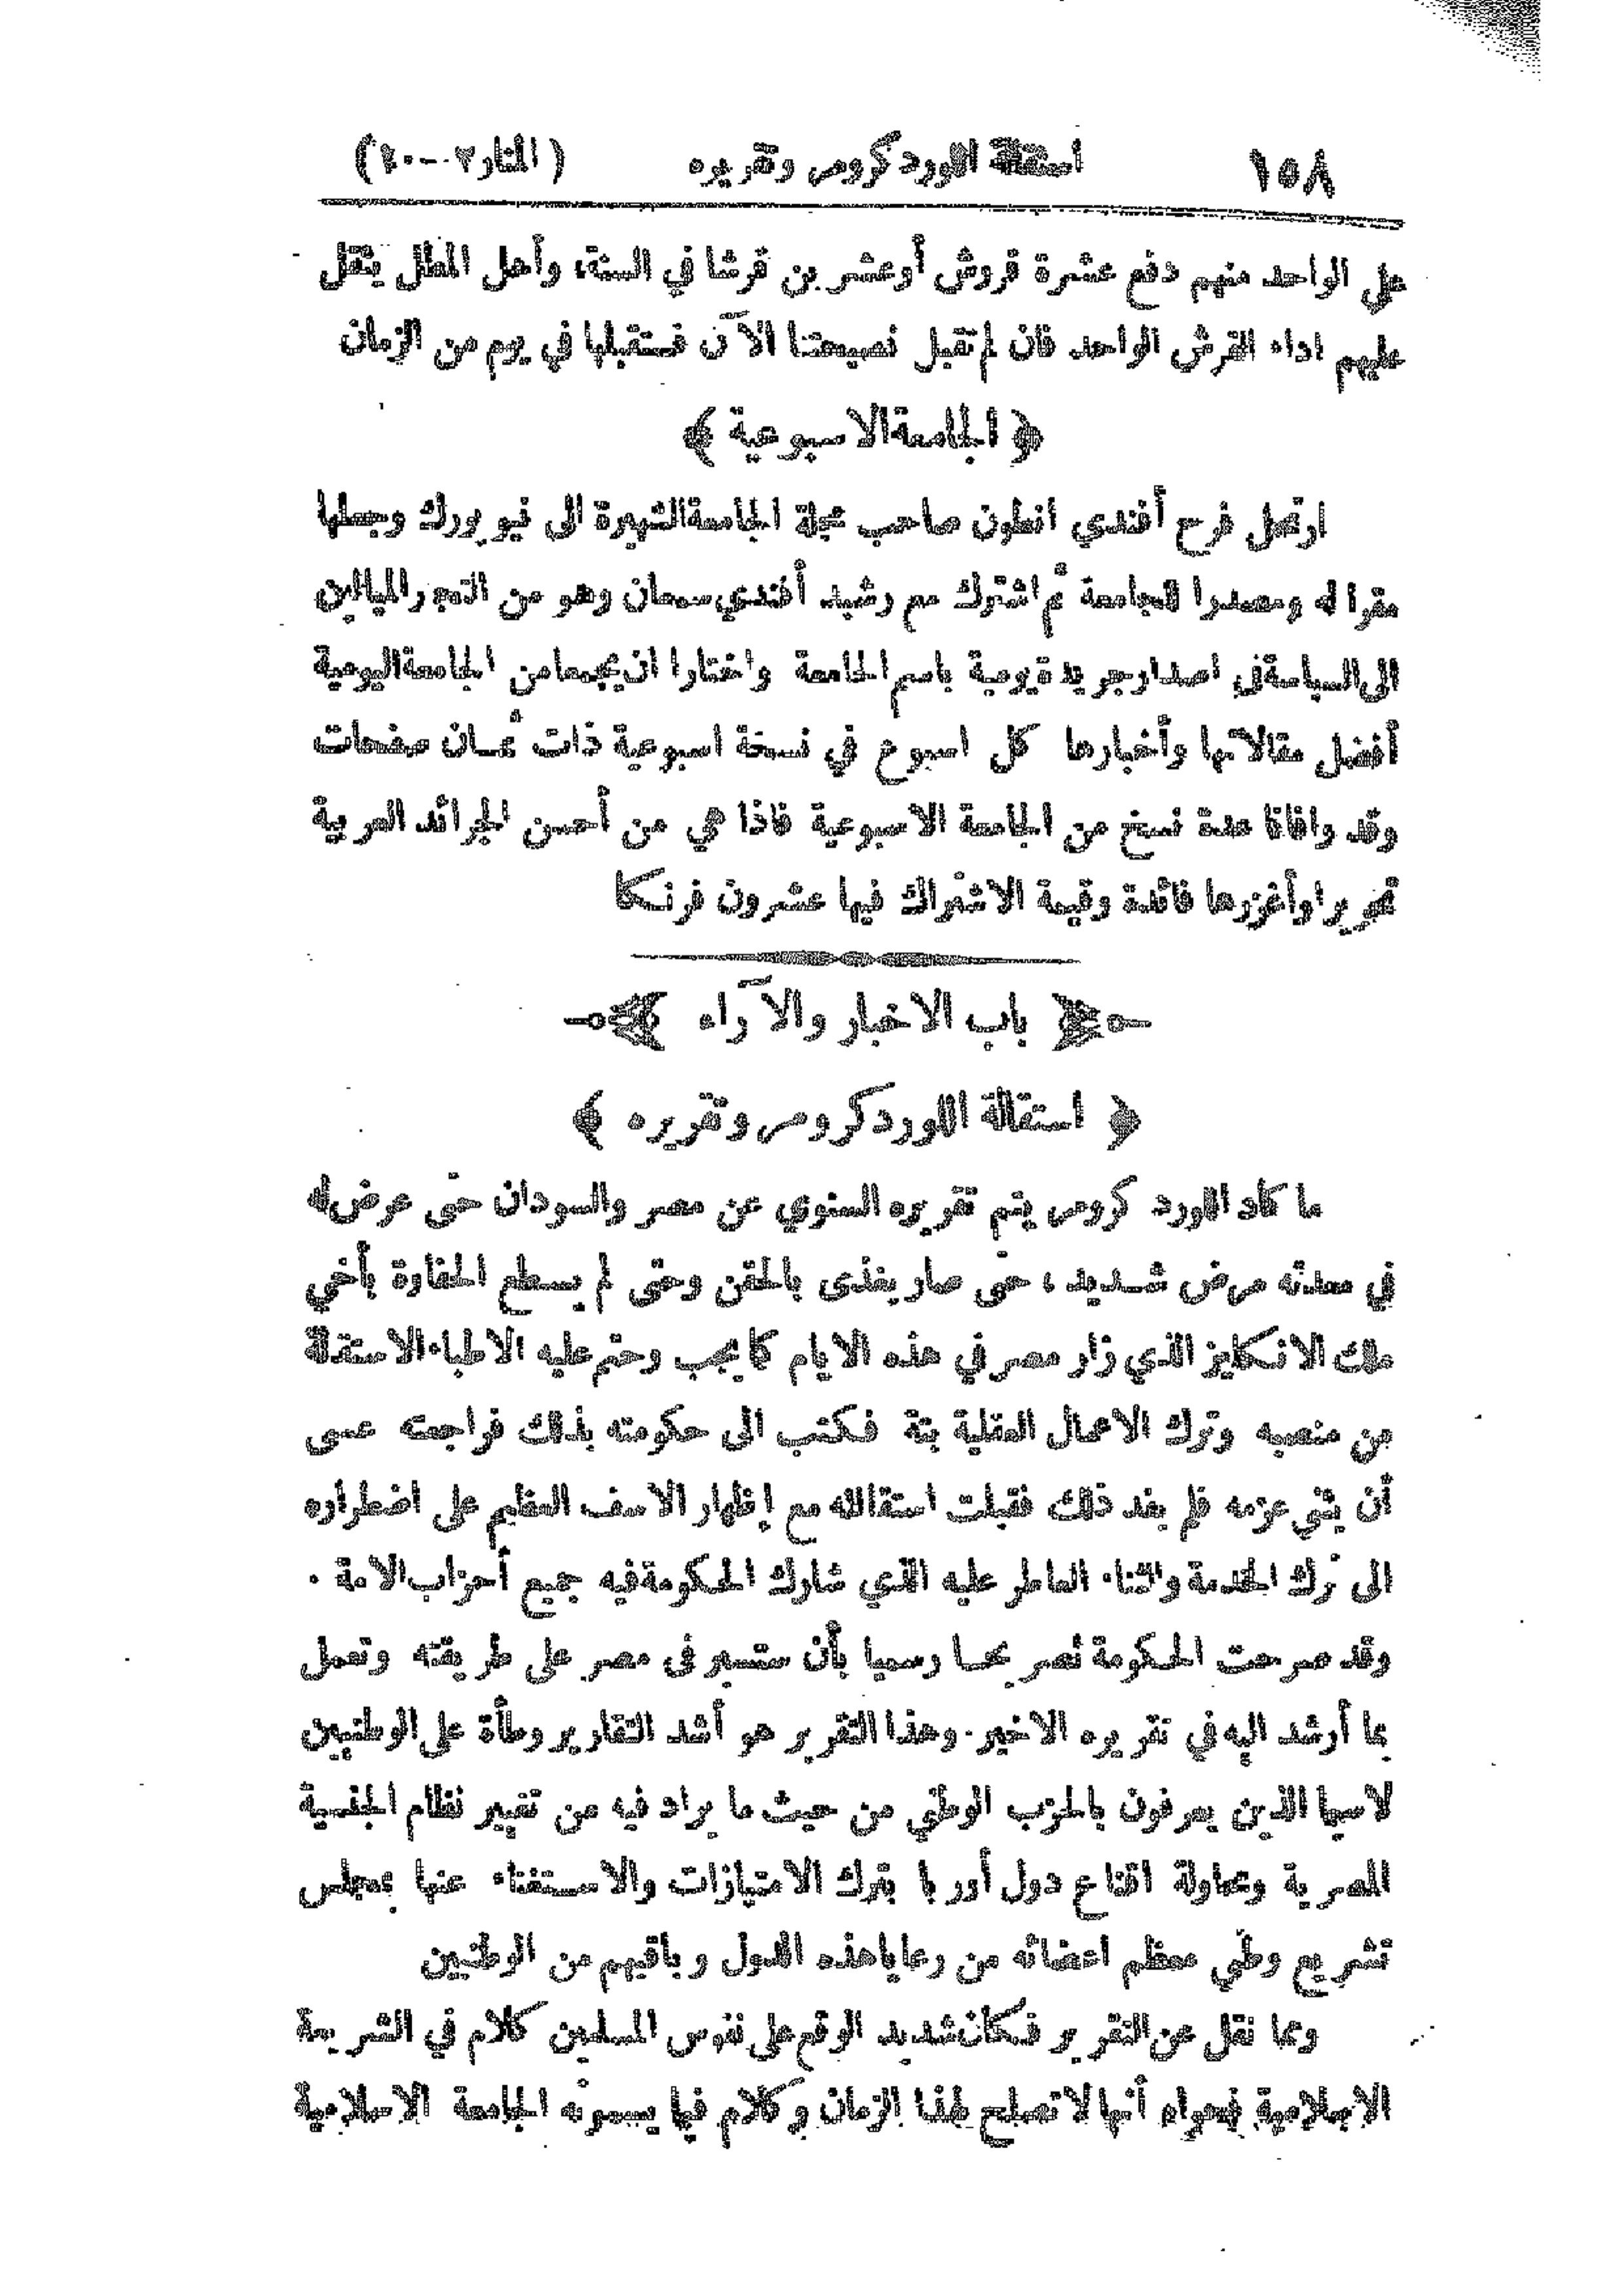 ١٥٨ استقالة اللورد كرومر وتقريره (المنار ٢ – ١٠)
على الواحد منهم دفع عشرة قروش أو عشرين قرشا في السنة، وأهل المطل يثقل
عليهم اداء القرش الواحد فان لم تقبل نصيحتنا الآن فستقبلها في يوم من الزمان
﴿ الجامعة الاسبوعية ﴾
ارتحل فرح أفندي انطون صاحب مجلة الجامعة الشهيرة الى نيو يورك وجعلها
مقرا له ومصدرا للجامعة ثم اشترك مع رشيد أفندي سمعان وهو من التجار الميالين
الى السياسة في اصدار جريدة يومية باسم الجامعة واختارا ان يجمعا من الجامعة اليومية
أفضل مقالاتها وأخبارها كل اسبوع في نسخة اسبوعية ذات ثمان صفحات
وقد وافانا عدة نسخ من الجامعة الاسبوعية فاذا هي من أحسن الجرائد العربية
تحريرا وأغزرها فائدة وقيمة الاشتراك فيها عشرون فرنكا
﴿ باب الاخبار والآراء ﴾
﴿ استقالة اللورد كرومر وتقريره ﴾
ما كاد اللورد كرومر يتم تقريره السنوي عن مصر والسودان حتى عرض له
في معدته مرض شديد، حتى صار يغذى بالحقن وحتى لم يسطع الحفاوة بأخي
ملك الانكليز الذي زار مصر في هذه الايام كما يجب وحتم عليه الاطباء الاستقالة
من منصبه وترك الاعمال العقلية بتة فكتب الى حكومته بذلك فراجعته عسى
أن يثني عزمه فلم يفد ذلك فقبلت استقالته مع إظهار الاسف العظيم على اضطراره
الى ترك الخدمة والثناء العاطر عليه الذي شارك الحكومة فيه جميع أحزاب الامة .
وقد صرحت الحكومة تصريحا رسميا بأن ستسير في مصر على طريقته وتعمل
بما أرشد اليه في تقريره الاخير. وهذا التقرير هو أشد التقارير وطأة على الوطنيين
لاسيما الذين يعرفون بالحزب الوطني من حيث ما يراد فيه من تغيير نظام الجنسية
المصرية ومحاولة اقناع دول أوربا بترك الامتيازات والاستغناء عنها بمجلس
تشريع وطني معظم اعضائه من رعايا هذه الدول وباقيهم من الوطنيين
ومما نقل عن التقرير فكان شديد الوقع على نفوس المسلمين كلام في الشريعة
الاسلامية فحواه أنها لا تصلح لهذا الزمان وكلام فيما يسمونه الجامعة الاسلامية